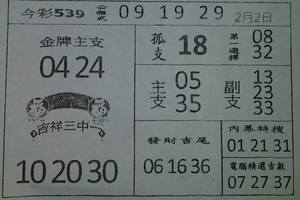 今彩539 公雞式 09 19 29 2月2日
金牌主支
04 24
吉祥三中一
10 20 30
孤支 18
第一選擇 08 32
主支 05 35
副支 13 23 33
發財吉尾
06 16 36
內幕特搜
01 21 31
電腦精選吉數
07 27 37